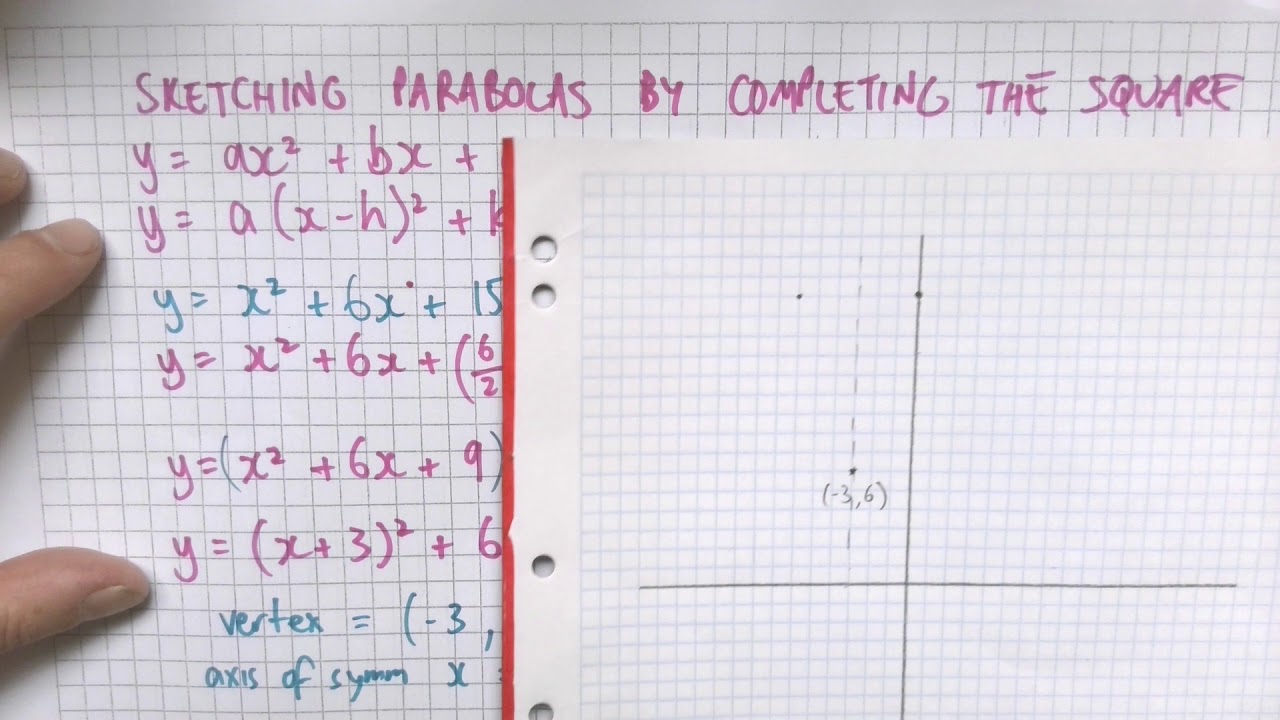 SKETCHING PARABOLAS BY COMPLETING THE SQUARE
y = ax² + bx +
y = a(x-h)² + k
y = x² + 6x + 15
y = x² + 6x + (6/2
y = (x² + 6x + 9)
y = (x+3)² + 6
vertex = (-3,
axis of symm x
(-3,6)